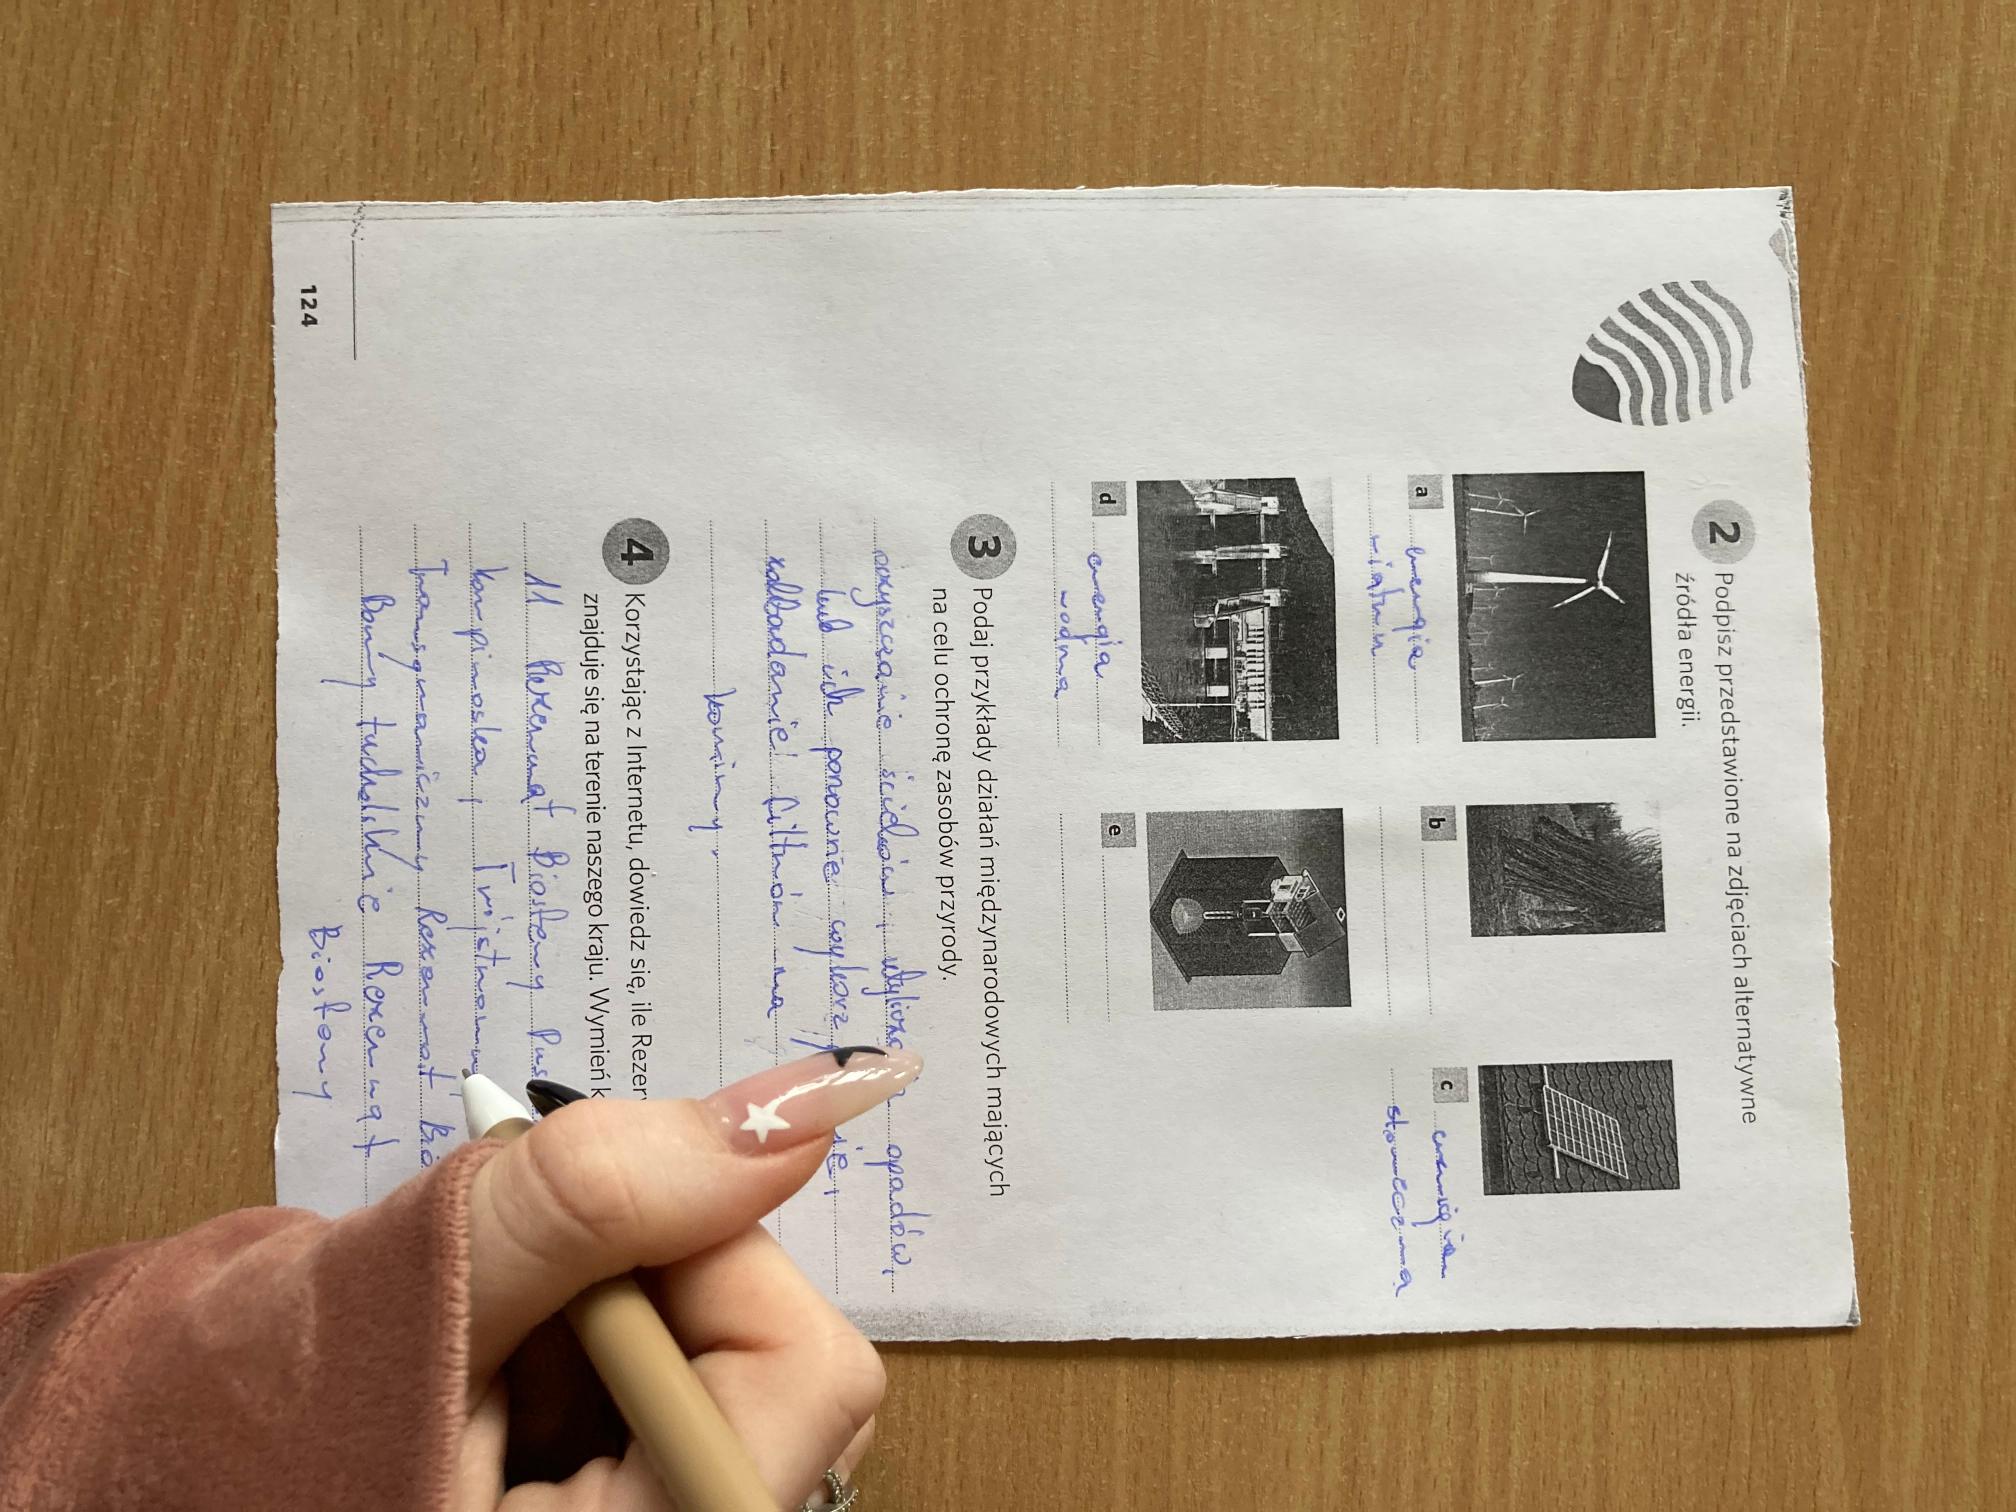 2 Podpisz przedstawione na zdjęciach alternatywne
źródła energii.
a energia
wiatru
b
c energia
słoneczna
d energia
wodna
e
3 Podaj przykłady działań międzynarodowych mających
na celu ochronę zasobów przyrody.
oczyszczanie ścieków i opadów,
lub ich ponowne
zakładanie filtrów na
kominy.
4 Korzystając z Internetu, dowiedz się, ile
znajduje się na terenie naszego kraju. Wymień
11 Rezerwat Biosfery
kampinoska,
Transgraniczny Rezerwat
Bory tucholskie Rezerwat
Biosfery
124